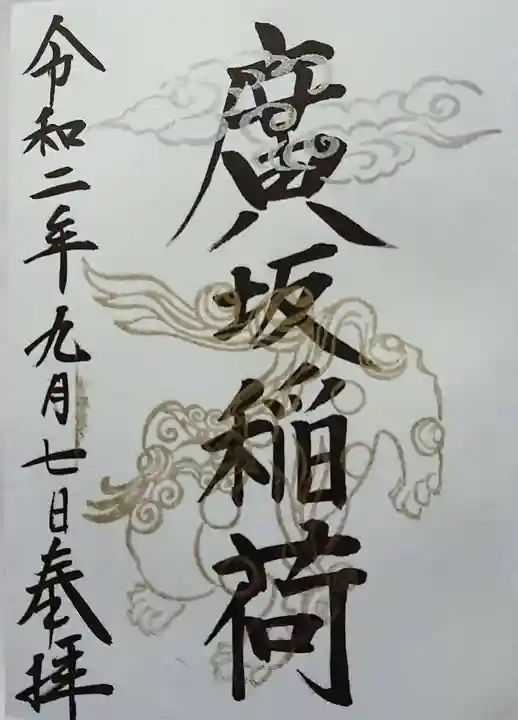 廣坂稲荷
令和二年九月七日奉拝